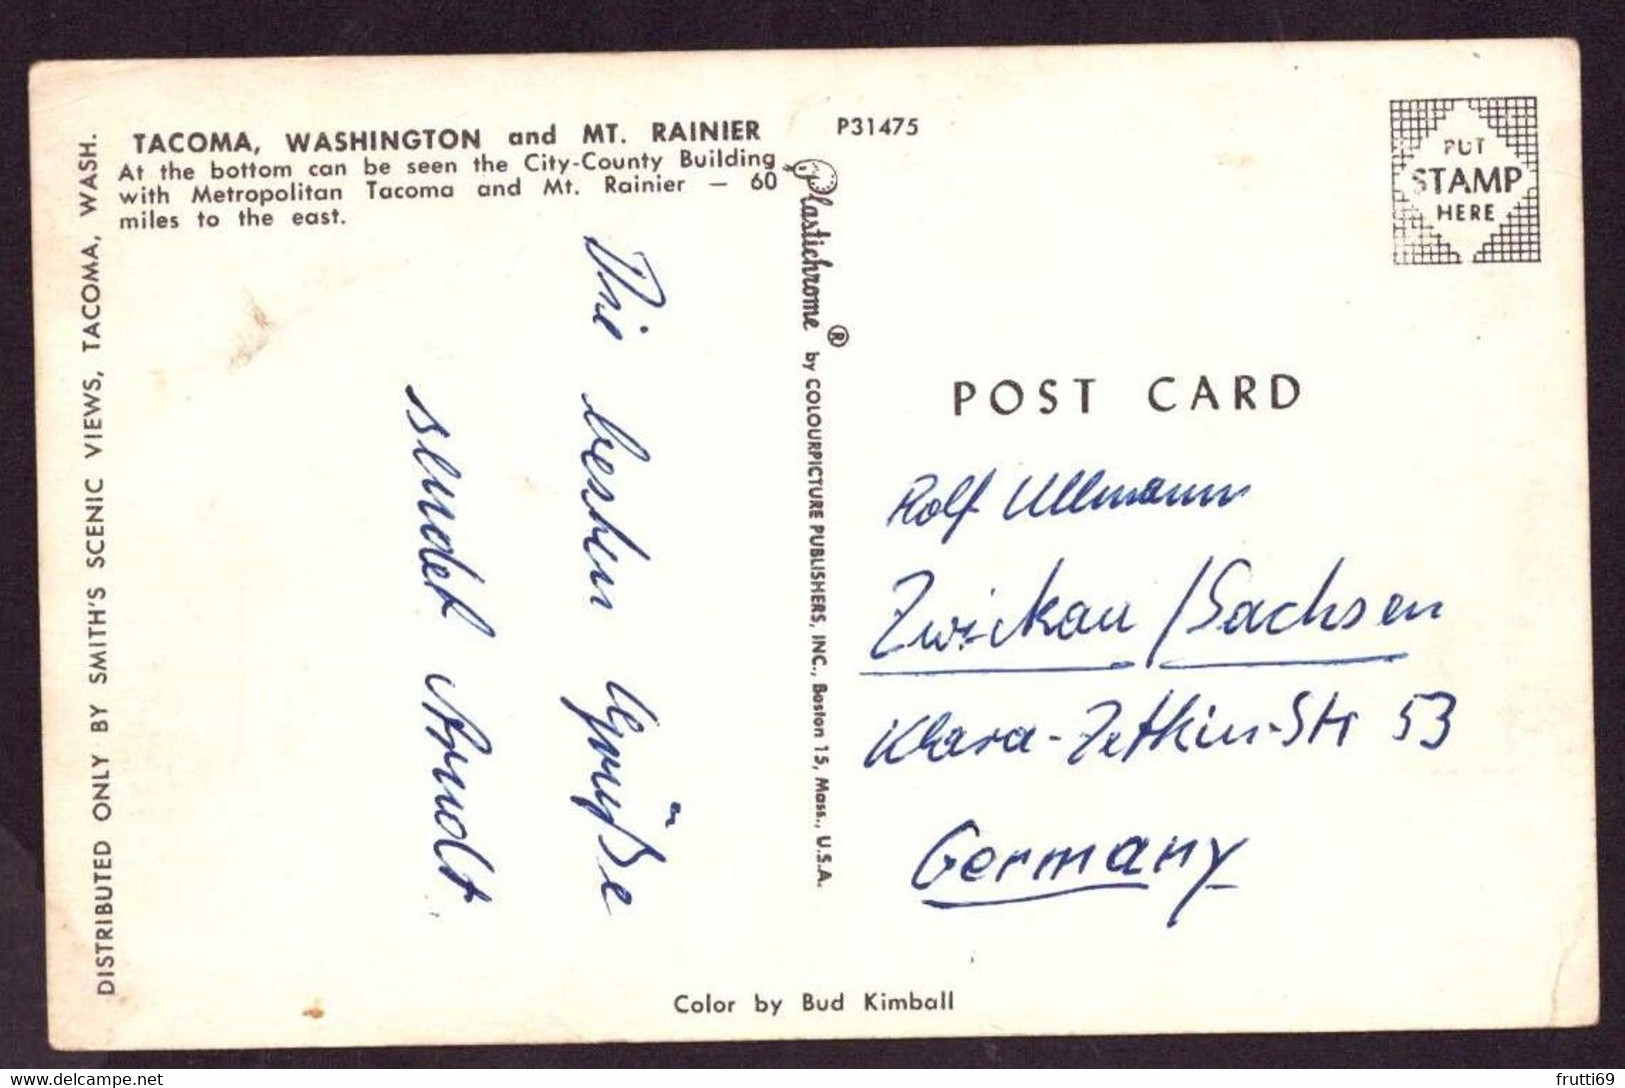 TACOMA, WASHINGTON and MT. RAINIER
At the bottom can be seen the City-County Building
with Metropolitan Tacoma and Mt. Rainier — 60
miles to the east.
DISTRIBUTED ONLY BY SMITH'S SCENIC VIEWS, TACOMA, WASH.
Die besten Grüße
sendet Arndt.
P31475
Plastichrome ® by COLOURPICTURE PUBLISHERS, INC., Boston 15, Mass., U.S.A.
PUT
STAMP
HERE
POST CARD
Rolf Ullmann
Zwickau / Sachsen
Klara-Zetkin-Str 53
Germany
Color by Bud Kimball
frutti69